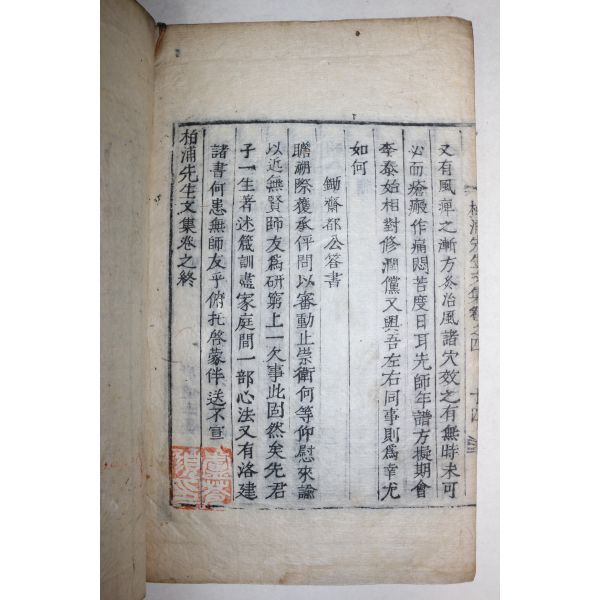 柏浦先生文集卷之四 十四
又有風痺之漸方灸治風諸穴效之有無時未可
必而瘡瘢作痛悶苦度日耳先師年譜方擬期會
李泰始相對修潤儻又與吾左右同事則爲幸尤
如何
鋤齋都公答書
瞻朔際獲承伻問以審動止崇衛何等仰慰來諭
以近無賢師友爲研窮上一欠事此固然矣先君
子一生著述箴訓盡家庭間一部心法又有洛建
諸書何患無師友乎俯托啓蒙伴送不宣
柏浦先生文集卷之終